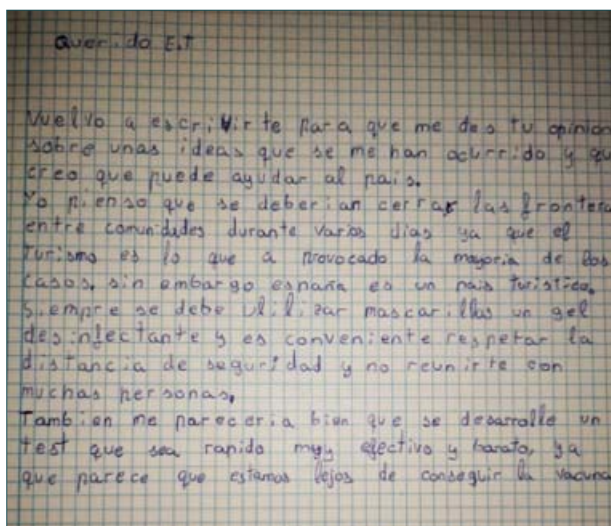 Querido E.T
Vuelvo a escrivirte para que me des tu opinion
sobre unas ideas que se me han ocurrido y qu
creo que puede ayudar al pais.
Yo pienso que se deberian cerrar las frontera
entre comunidades durante varios dias ya que el
turismo es lo que a provocado la mayoria de los
casos, sin embargo españa es un pais turistico.
Siempre se debe utilizar mascarillas un gel
desinfectante y es conveniente respetar la
distancia de seguridad y no reunirte con
muchas personas,
Tambien me pareceria bien que se desarrolle un
test que sea rapido muy efectivo y barato, ya
que parece que estamos lejos de conseguir la vacuna